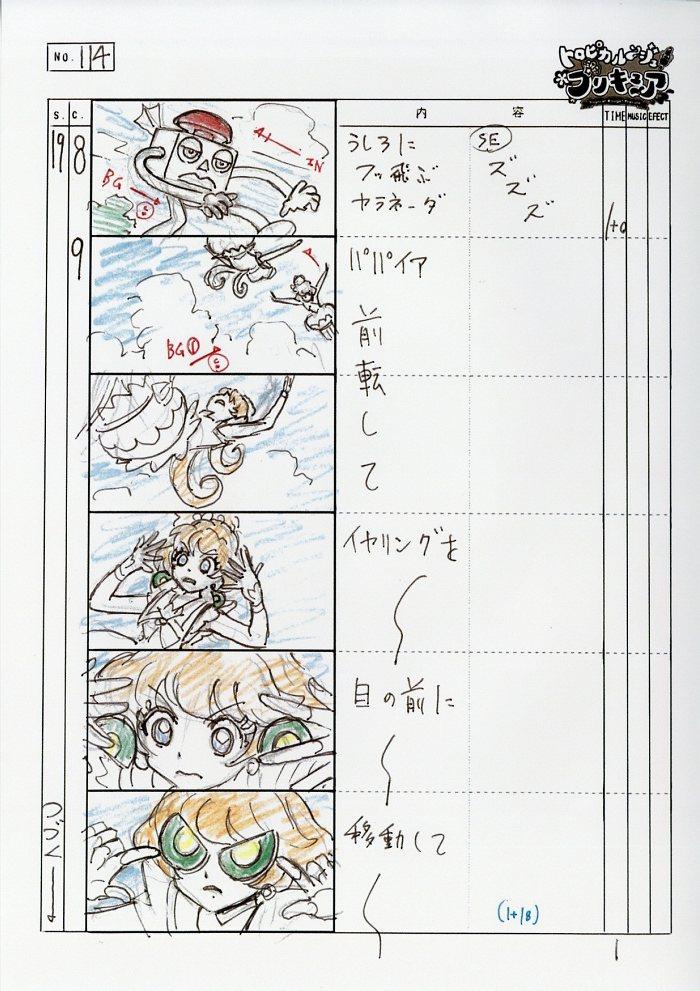 NO. 114
トロピカル～ジュ
プリキュア
S. C. 内 容 TIME MUSIC EFECT
19 8
IN
BG
うしろに
フッ飛ぶ
ヤラネーダ
SE
ズ
ズ
ズ
1+0
9
BG
パパイア
前
転
し
て
イヤリングを
目の前に
移動して
(1+18)
つづく
1